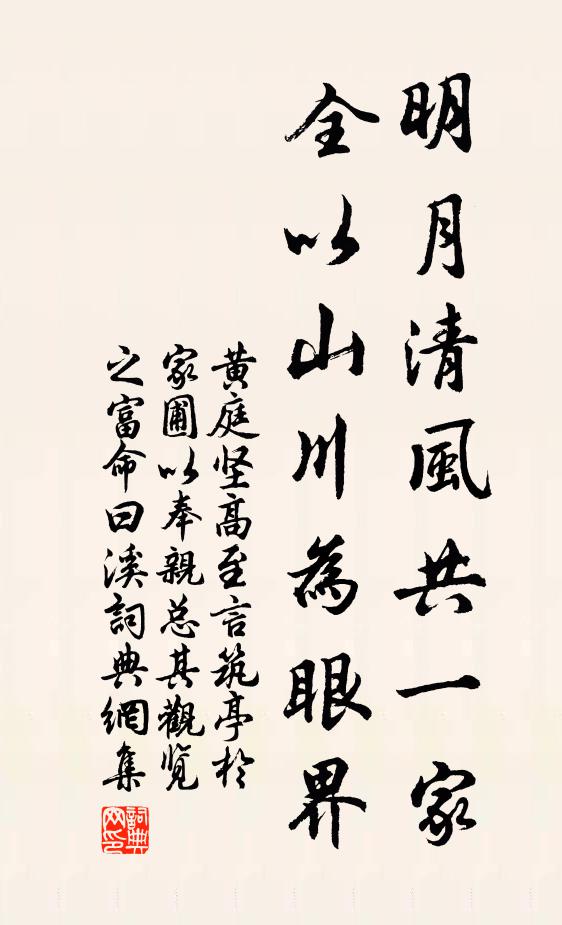 明月清風共一家
全以山川為眼界
黄庭坚高至言筑亭於
家圃以奉親总其觀览
之富命曰溪詞典網集
詞典網印